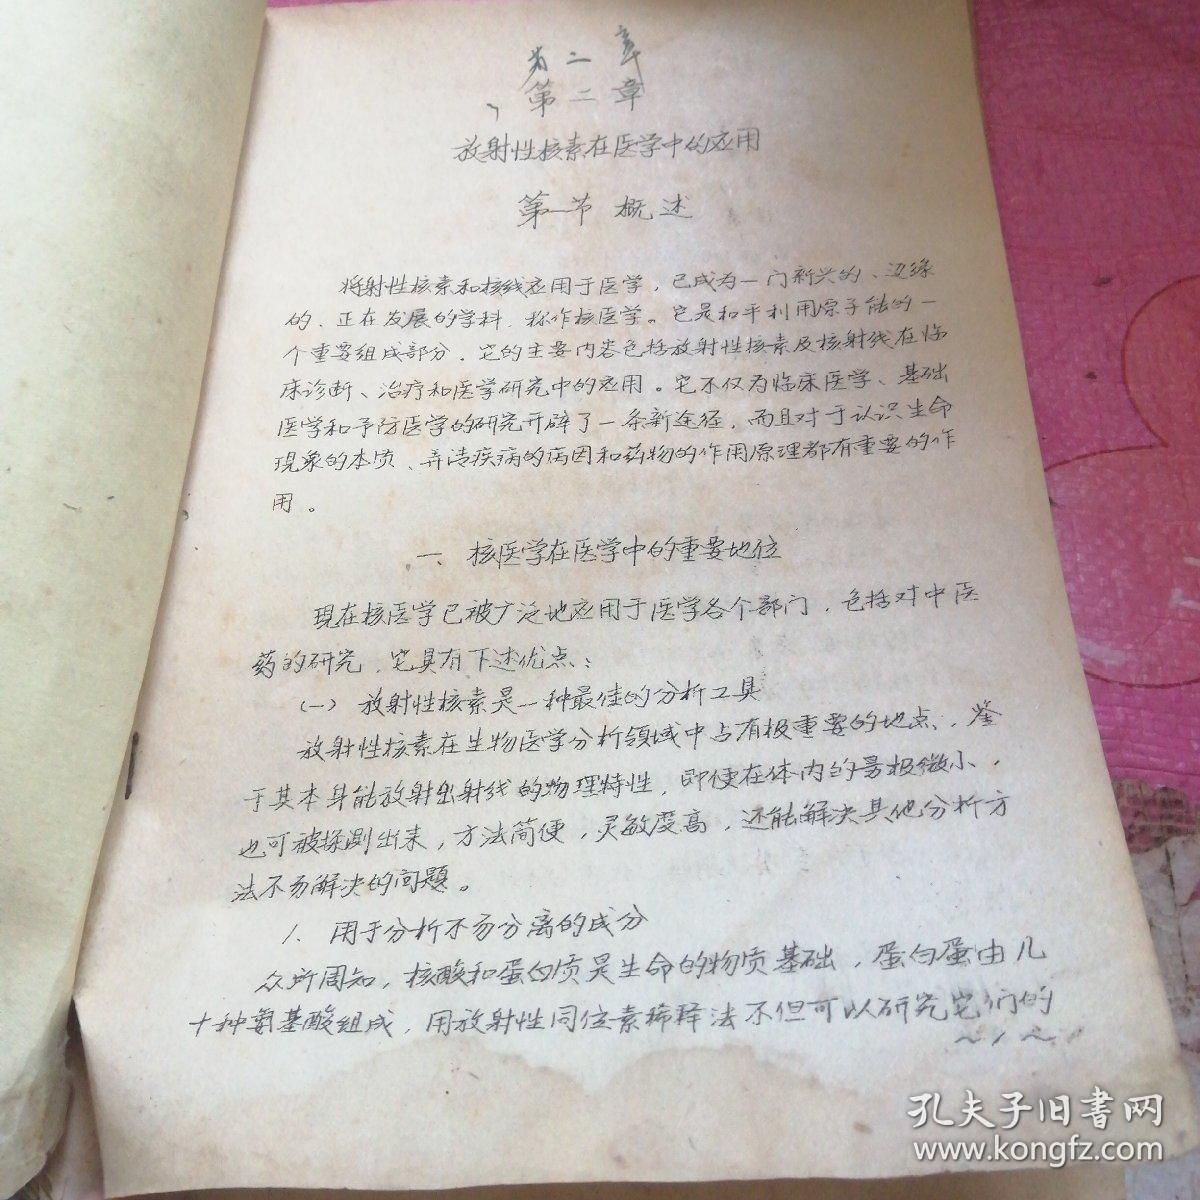 第二章
第二章
放射性核素在医学中的应用
第一节 概述
将射性核素和核线应用于医学，已成为一门新兴的、边缘
的、正在发展的学科，称作核医学。它是和平利用原子能的一
个重要组成部分，它的主要内容包括放射性核素及核射线在临
床诊断、治疗和医学研究中的应用。它不仅为临床医学、基础
医学和予防医学的研究开辟了一条新途径，而且对于认识生命
现象的本质、弄清疾病的病因和药物的作用原理都有重要的作
用。
一、核医学在医学中的重要地位
现在核医学已被广泛地应用于医学各个部门，包括对中医
药的研究，它具有下述优点：
（一）放射性核素是一种最佳的分析工具
放射性核素在生物医学分析领域中占有极重要的地点，鉴
于其本身能放射出射线的物理特性，即使在体内的量极微小，
也可被探测出来，方法简便，灵敏度高，还能解决其他分析方
法不易解决的问题。
1、用于分析不易分离的成分
众所周知，核酸和蛋白质是生命的物质基础，蛋白蛋由几
十种氨基酸组成，用放射性同位素稀释法不但可以研究它们的
～1～
孔夫子旧书网
www.kongfz.com